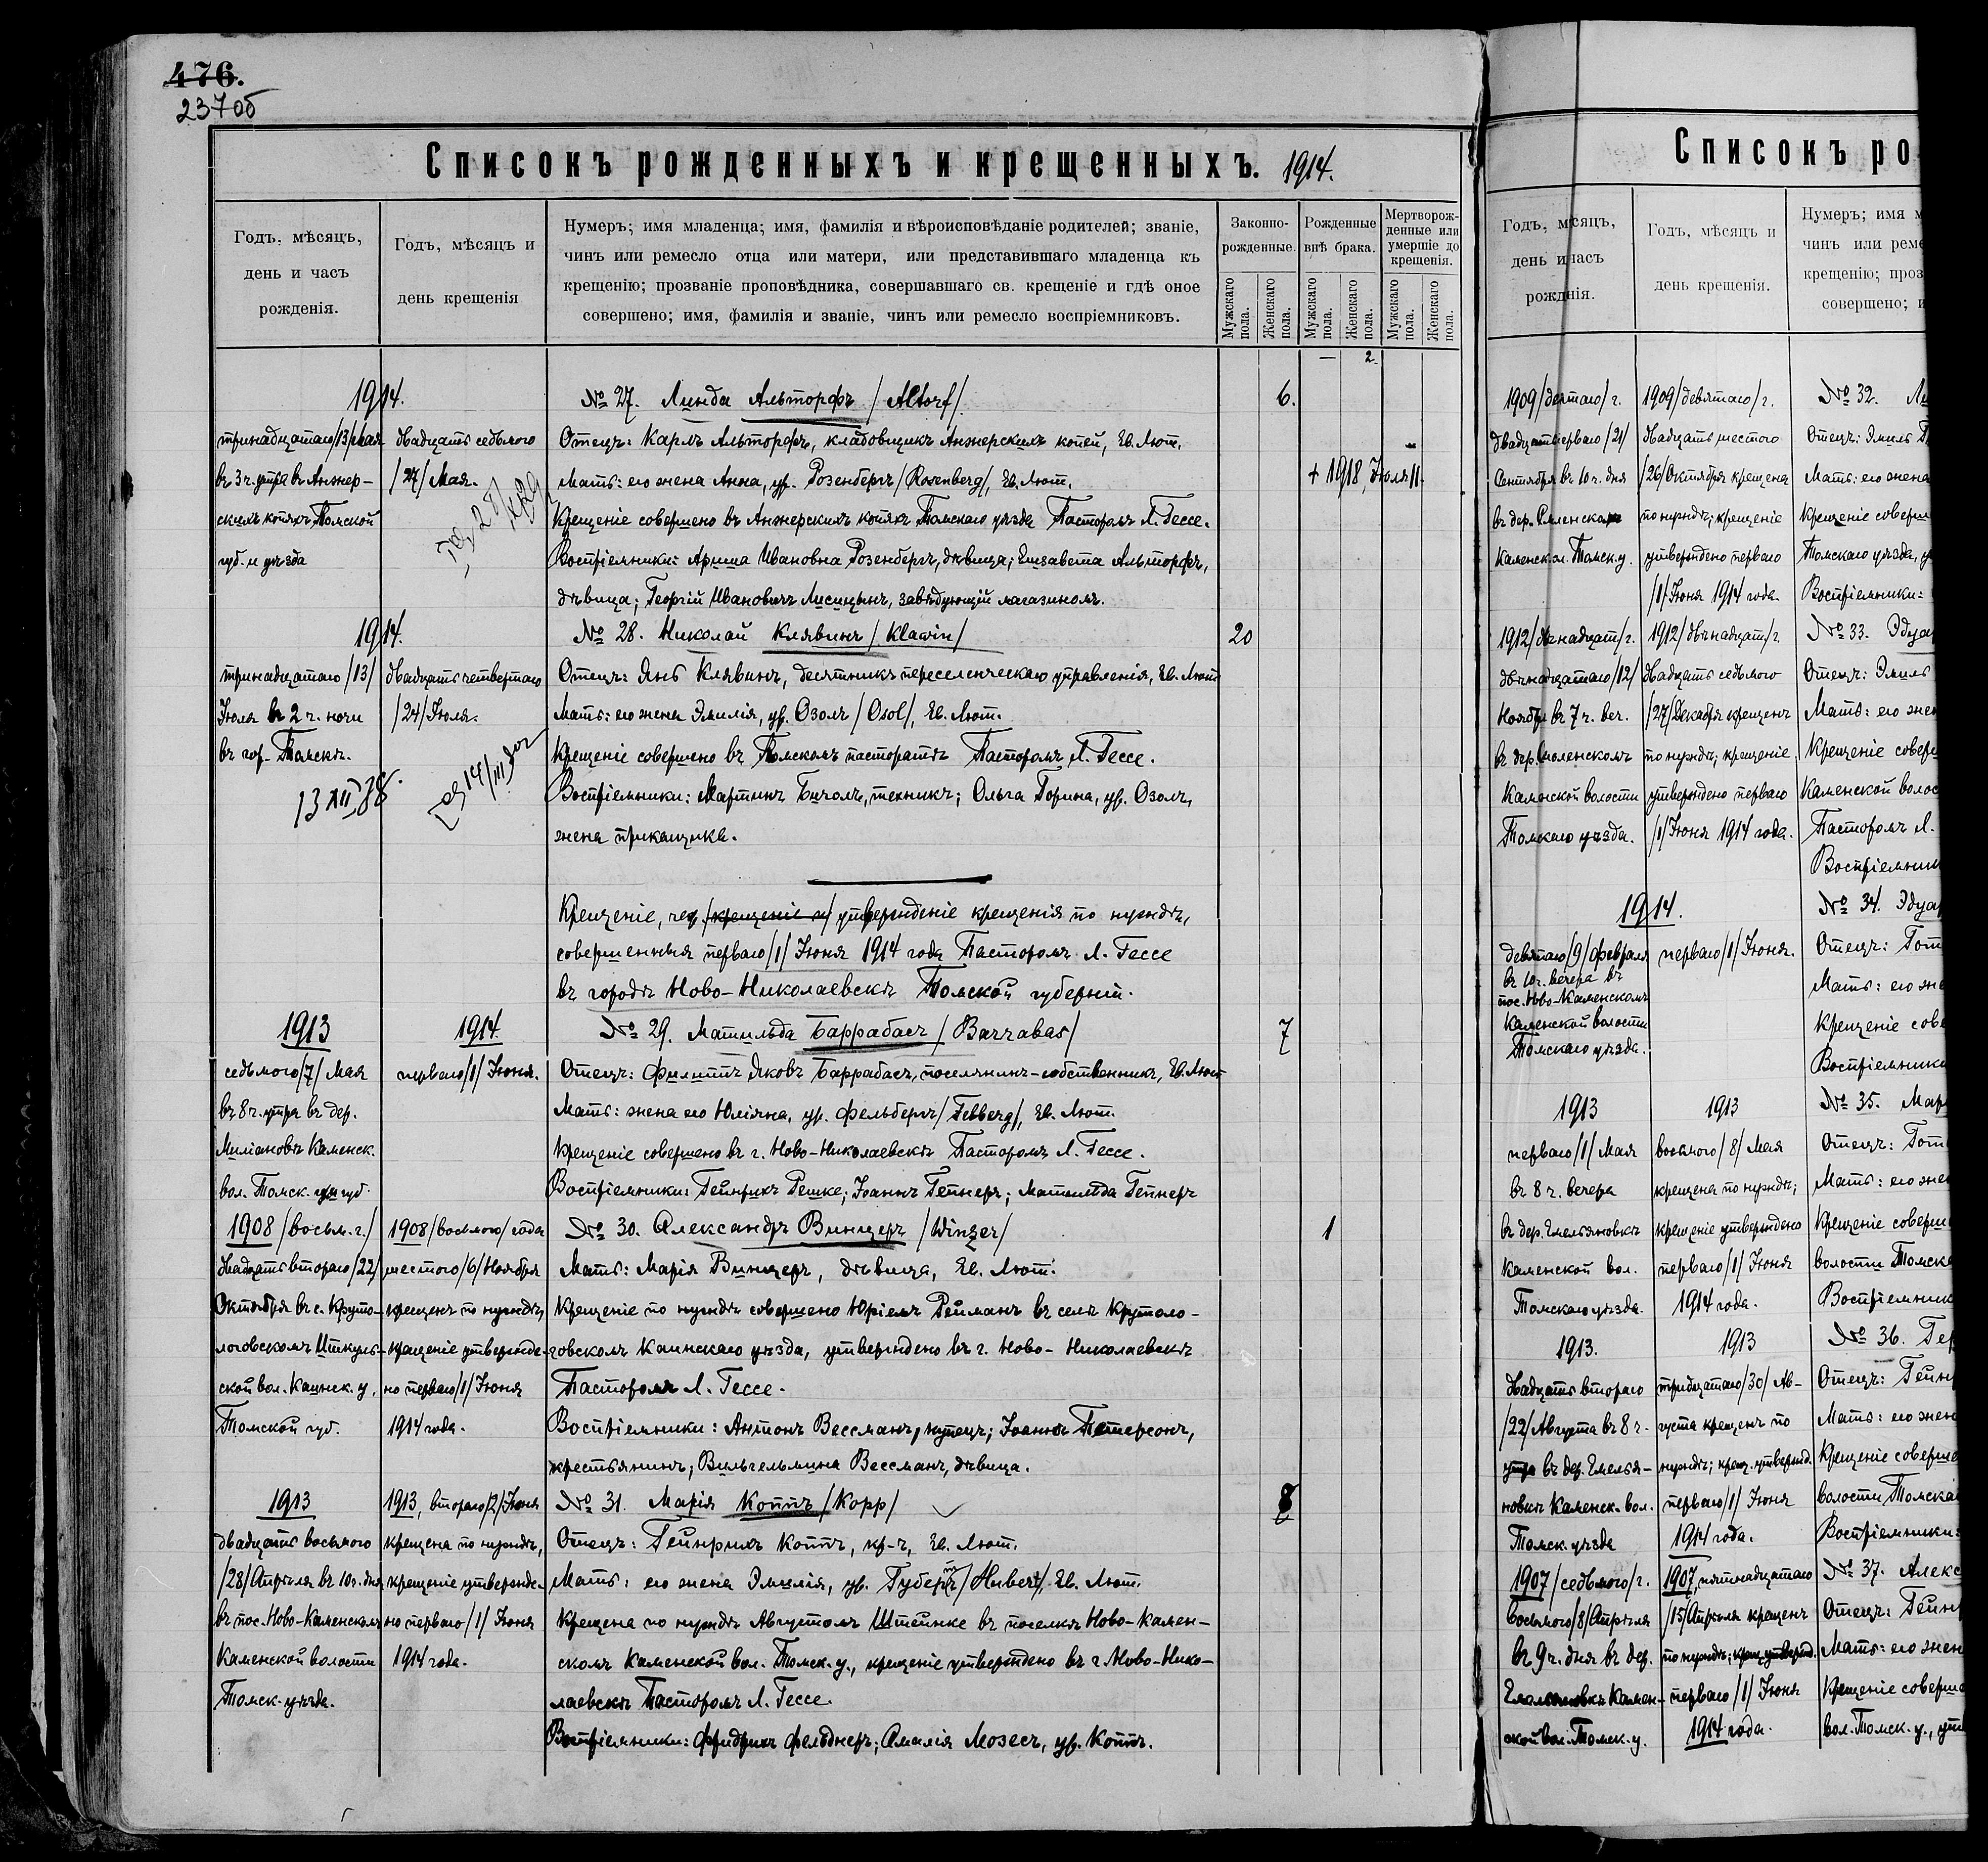 476.
237об
Списокъ рожденныхъ и крещенныхъ. 1914.
Годъ, мѣсяцъ,
день и часъ
рожденія.
Годъ, мѣсяцъ и
день крещенія
Нумеръ; имя младенца; имя, фамилія и вѣроисповѣданіе родителей; званіе,
чинъ или ремесло отца или матери, или представившаго младенца къ
крещенію; прозваніе проповѣдника, совершавшаго св. крещеніе и гдѣ оное
совершено; имя, фамилія и званіе, чинъ или ремесло воспріемниковъ.
Законно-
рожденные.
Рожденные
внѣ брака.
Мертворож-
денные или
умершіе до
крещенія.
Мужскаго пола.
Женскаго пола.
Мужскаго пола.
Женскаго пола.
Мужскаго пола.
Женскаго пола.
— 2.
1914.
тринадцатаго/13/Мая
въ 3 ч. утра въ Анжер-
скихъ копяхъ Томской
губ. и уѣзда
двадцать седьмого
/27/ Мая.
№ 27. Линда Альторфъ /Altorf/
6.
Отецъ: Карлъ Альторфъ, кладовщикъ Анжерскихъ копей, Ев. Лют.
Мать: его жена Анна, ур. Розенбергъ /Rosenberg/, Ев. Лют.
+ 1918, Іюля 11.
Крещеніе совершено въ Анжерскихъ копяхъ Томскаго уѣзда Пасторомъ Л. Гессе.
Воспріемники: Ариша Ивановна Розенбергъ, дѣвица; Елизавета Альторфъ,
дѣвица; Георгій Ивановичъ Лисицынъ, завѣдующій магазиномъ.
1914.
тринадцатаго /13/
Іюля въ 2 ч. ночи
въ гор. Томскѣ.
13 XII 38.
двадцать четвертаго
/24/ Іюля.
№ 28. Николай Клявинъ /Klawin/
20
Отецъ: Янъ Клявинъ, десятникъ переселенческаго управленія, Ев. Лют
Мать: его жена Эмилія, ур. Озолъ /Osol/, Ев. Лют.
Крещеніе совершено въ Томскомъ пасторатѣ Пасторомъ Л. Гессе.
Воспріемники: Мартинъ Бичолъ, техникъ; Ольга Горина, ур. Озолъ,
жена прикащика.
Крещеніе, /крещеніе и/ утвержденіе крещенія по нуждѣ,
совершенныя перваго /1/ Іюня 1914 года Пасторомъ Л. Гессе
въ городѣ Ново-Николаевскѣ Томской губерніи.
1913
седьмого /7/ Мая
въ 8 ч. утра въ дер.
Миліановкѣ Каменск.
вол. Томск. губ.
1914
перваго /1/ Іюня.
№ 29. Матильда Баррабасъ /Barrabas/
7
Отецъ: Филиппъ Яковъ Баррабасъ, поселянинъ-собственникъ, Ев. Лют
Мать: жена его Юліяна, ур. Фельбергъ /Felberg/, Ев. Лют.
Крещеніе совершено въ г. Ново-Николаевскѣ Пасторомъ Л. Гессе.
Воспріемники: Гейнрихъ Решке; Іоаннъ Гепнеръ; Матильда Гепнеръ
1908 /восьм. г./
двадцать втораго /22/
Октября въ с. Круто-
логовскомъ Иткуль-
ской вол. Каинск. у.,
Томской губ.
1908 /восьмого/ года
шестого /6/ Ноября
крещенъ по нуждѣ,
крещеніе утвержде-
но перваго /1/ Іюня
1914 года.
№ 30. Александръ Винцеръ /Winzer/
1
Мать: Марія Винцеръ, дѣвица, Ев. Лют.
Крещеніе по нуждѣ совершено Юріемъ Рейманъ въ селѣ Крутоло-
говскомъ Каинскаго уѣзда, утверждено въ г. Ново-Николаевскѣ
Пасторомъ Л. Гессе.
Воспріемники: Антонъ Вессманъ, купецъ; Іоаннъ Петерсонъ,
крестьянинъ; Вильгельмина Вессманъ, дѣвица.
1913
двадцать восьмого
/28/ Апрѣля въ 10 ч. дня
въ пос. Ново-Каменскомъ
Каменской волости
Томск. уѣзда.
1913, второго /2/ Іюня
крещена по нуждѣ,
крещеніе утвержде-
но перваго /1/ Іюня
1914 года.
№ 31. Марія Коппъ /Kopp/
8
Отецъ: Гейнрихъ Коппъ, кр-ъ, Ев. Лют.
Мать: его жена Эмилія, ур. Губертъ /Hubert/. Ев. Лют.
Крещена по нуждѣ Августомъ Штейнке въ поселкѣ Ново-Камен-
скомъ Каменской вол. Томск. у., крещеніе утверждено въ г. Ново-Нико-
лаевскѣ Пасторомъ Л. Гессе.
Воспріемники: Фридрихъ Фельднеръ; Амалія Мозесъ, ур. Коппъ.
Списокъ ро
Годъ, мѣсяцъ,
день и часъ
рожденія.
Годъ, мѣсяцъ и
день крещенія.
Нумеръ; имя м
чинъ или реме
крещенію; проз
совершено; и
1909 /девятаго/ г.
двадцать перваго /21/
Сентября въ 10 ч. дня
въ дер. Смоленскомъ
Каменск. вол. Томск. у.
1909 /девятаго/ г.
двадцать шестого
/26/ Октября крещена
по нуждѣ; крещеніе
утверждено перваго
/1/ Іюня 1914 года
№ 32. Ли
Отецъ: Эмиль
Мать: его жена
Крещеніе соверш
Томскаго уѣзда, у
Воспріемники:
1912 /двѣнадцат/ г.
двѣнадцатаго /12/
Ноября въ 7 ч. веч.
въ дер. Смоленскомъ
Каменской волости
Томскаго уѣзда.
1912 /двѣнадцат/ г.
двадцать седьмого
/27/ Декабря крещенъ
по нуждѣ; крещеніе
утверждено перваго
/1/ Іюня 1914 года.
№ 33. Эдуа
Отецъ: Эмиль
Мать: его жен
Крещеніе соверш
Каменской волос
Пасторомъ Л.
Воспріемник
1914.
девятаго /9/ Февраля
въ 10 ч. вечера въ
пос. Ново-Каменскомъ
Каменской волости
Томскаго уѣзда.
перваго /1/ Іюня.
№ 34. Эдуар
Отецъ: Гот
Мать: его же
Крещеніе сове
Воспріемники
1913
перваго /1/ Мая
въ 8 ч. вечера
въ дер. Емельяновкѣ
Каменской вол.
Томскаго уѣзда.
1913
восьмого /8/ Мая
крещена по нуждѣ;
крещеніе утверждено
перваго /1/ Іюня
1914 года.
№ 35. Мар
Отецъ: Гот
Мать: его жен
Крещеніе соверш
волости Томска
Воспріемник
1913.
двадцать второго
/22/ Августа въ 8 ч.
утра въ дер. Емелья-
новкѣ Каменск. вол.
Томск. уѣзда
1913
тридцатаго /30/ Ав-
густа крещенъ по
нуждѣ; крещ. утвержд.
перваго /1/ Іюня
1914 года.
№ 36. Ге
Отецъ: Гейн
Мать: его жен
Крещеніе соверше
волости Томска
Воспріемники:
1907 /седьмого/ г.
восьмого /8/ Апрѣля
въ 9 ч. дня въ дер.
Емельяновкѣ Камен-
ской вол. Томск. у.
1907, пятнадцатаго
/15/ Апрѣля крещенъ
по нуждѣ; крещ. утвержд.
перваго /1/ Іюня
1914 года.
№ 37. Алекс
Отецъ: Гейн
Мать: его жен
Крещеніе соверше
вол. Томск. у., ут